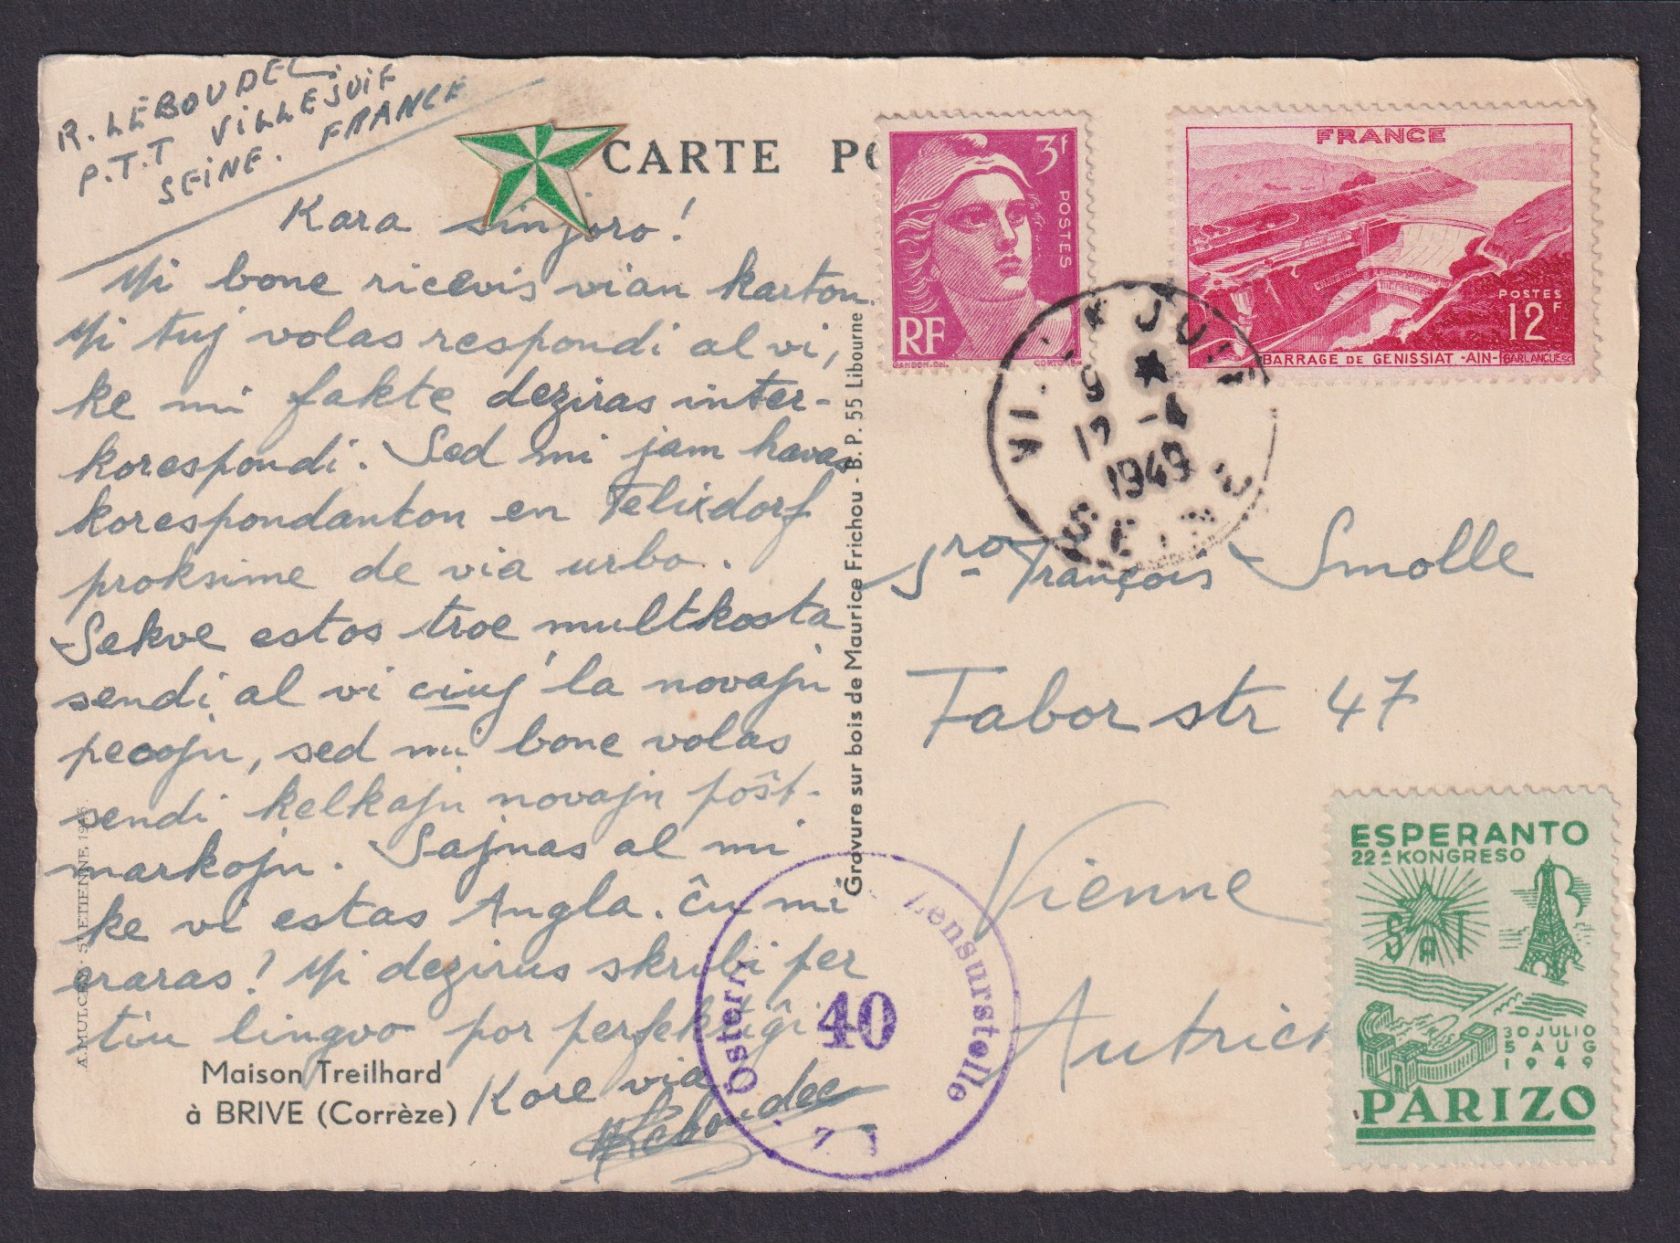 R. LEBOUDEC.
P.T.T VILLEJUIF
SEINE. FRANCE
CARTE PO
Kara sinjoro!
Mi bone ricevis vian karton.
Mi tuj volas respondi al vi,
ke mi fakte deziras inter-
korespondi. Sed mi jam havas
korespondanton en Felixdorf
proksime de via urbo.
Sekve estos troe multkosta
sendi al vi ciuj la novajn
pecojn, sed mi bone volas
sendi kelkajn novajn pošt-
markojn. Sajnas al mi
ke vi estas Angla. ĉu mi
eraras! Mi dezirus skribi per
tiu lingvo por perfektiĝi
Kore via
Leboudec
Maison Treilhard
à BRIVE (Corrèze)
A. MULCEY - ST ETIENNE
Gravure sur bois de Maurice Frichou - B. P. 55 Libourne
3f
POSTES
RF
FRANCE
POSTES
12F
BARRAGE DE GENISSIAT -AIN-
BARLANGUE
9
12 -4
1949
Sro François Smolle
Fabor str 47
Vienne
Autrich
Zensurstelle
40
ESPERANTO
22A KONGRESO
SAT
30 JULIO
5 AUG
1949
PARIZO